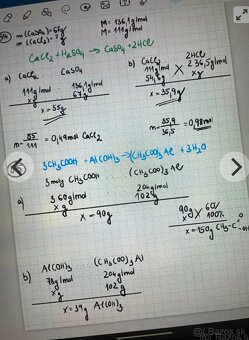 m(CaSO₄)=67g M= 136,1g/mol
m(CaCl₂)=?g M= 111g/mol
CaCl₂ + H₂SO₄ → CaSO₄ + 2HCl
a) CaCl₂ ... CaSO₄
111g/mol 136,1g/mol
x g 67g
x = 55g
m= 55/111 = 0,49mol CaCl₂
b) CaCl₂ 2HCl
111g/mol 2·36,5g/mol
x g
x = 35,9g
m= 35,9/36,5 = 0,98mol
3CH₃COOH + Al(OH)₃ → (CH₃COO)₃Al + 3H₂O
a) 3mol CH₃COOH ... (CH₃COO)₃Al
3·60g/mol 204g/mol
x g 102g
x = 90g
90g 60%
x g 100%
x = 150g CH₃-C
b) Al(OH)₃ ... (CH₃COO)₃Al
78g/mol 204g/mol
x g 102g
x = 39g Al(OH)₃
© LBazos.sk